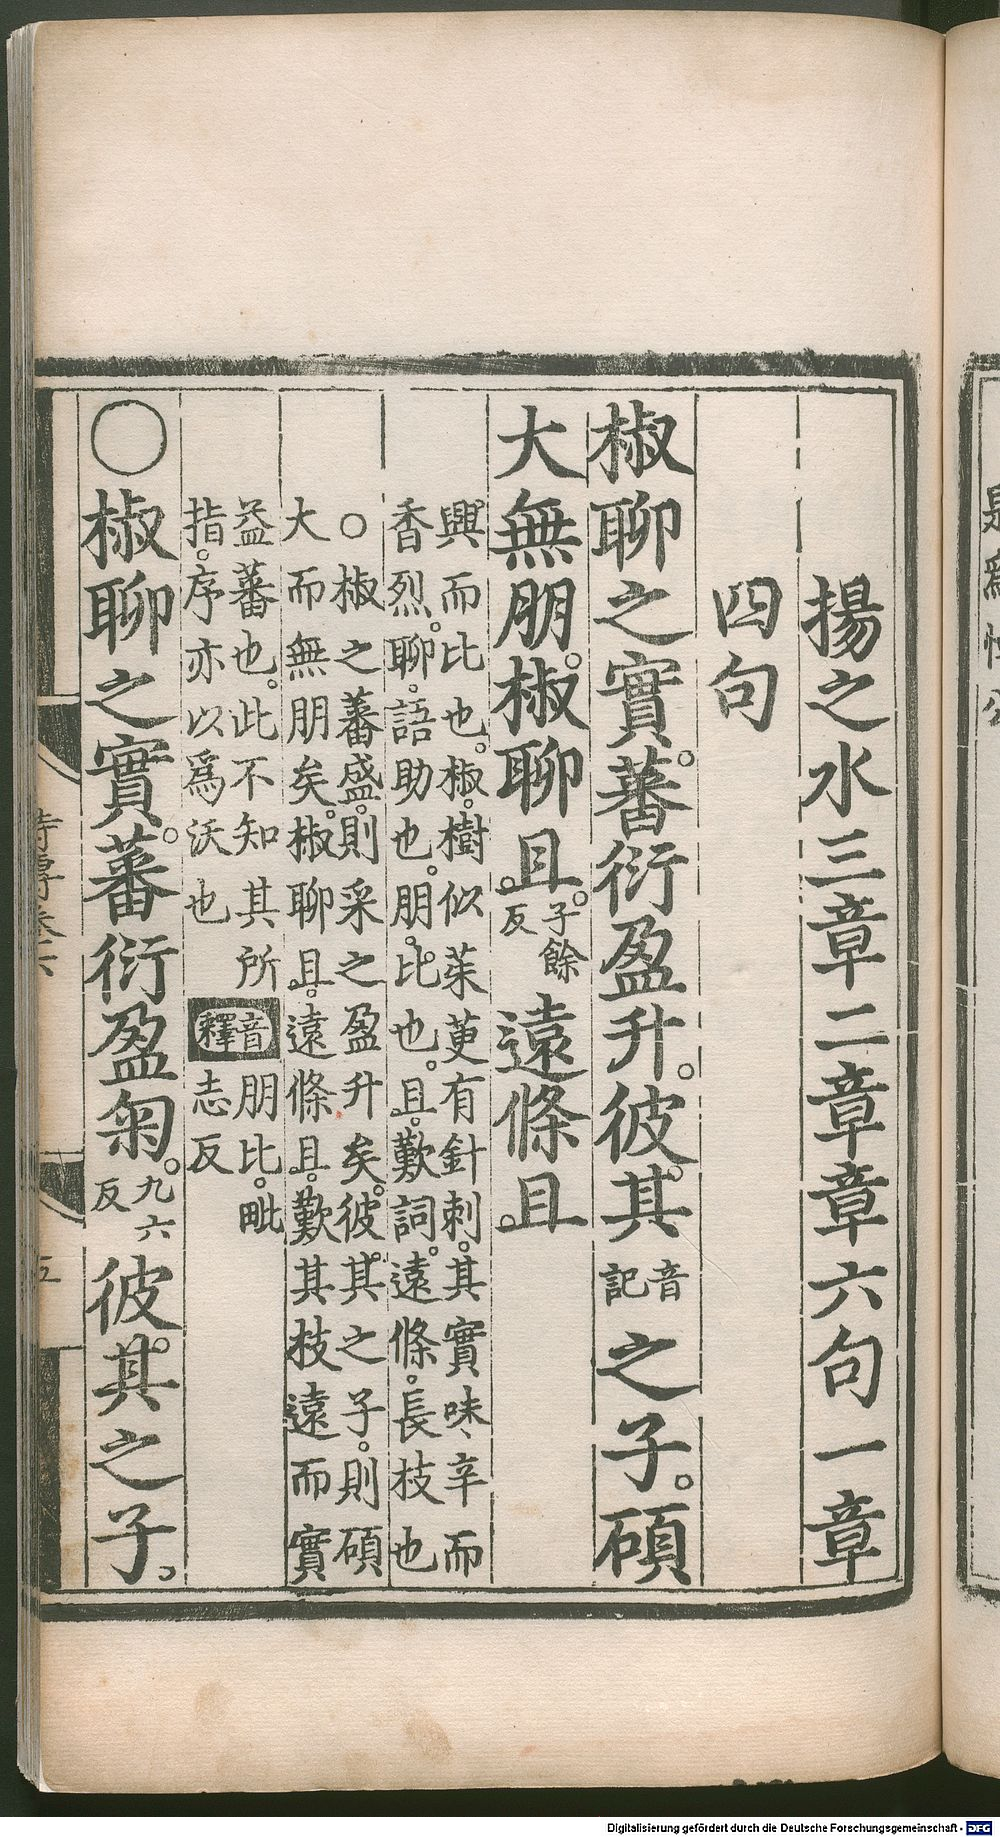 揚之水三章二章章六句一章
四句
椒聊之實。蕃衍盈升。彼其音記之子。碩
大無朋。椒聊且。子餘反遠條且。
興而比也。椒。樹似茱萸有針刺。其實味辛而
香烈。聊。語助也。朋。比也。且。歎詞。遠條。長枝也
○椒之蕃盛。則采之盈升矣。彼其之子。則碩
大而無朋矣。椒聊且。遠條且。歎其枝遠而實
益蕃也。此不知其所
指。序亦以爲沃也
音釋
朋比。毗
志反
○椒聊之實。蕃衍盈匊。九六反彼其之子。
詩傳卷六
五
Digitalisierung gefördert durch die Deutsche Forschungsgemeinschaft - DFG